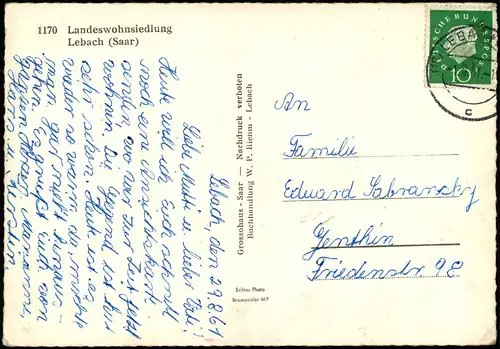 1170 Landeswohnsiedlung
Lebach (Saar)
Lebach, den 29.8.61
Liebe Mutti u. lieber Vati!
Heute will ich Euch schnell
noch eine Ansichtskarte
senden, wo wir zur Zeit
wohnen. Die Gegend ist hier
sehr schön. Heute ist es
wieder so warm, da möchte
man gar nicht
gehen. Es grüßt Euch von
Herzen
Grossohaus - Saar — Nachdruck verboten
Buchhandlung W. P. Riemm - Lebach
Echtes Photo
Bromocolor MP
DEUTSCHE BUNDESPOST
10
LEBA
c
An
Familie
Eduard Sabransky
Genthin
Friedenstr. 98